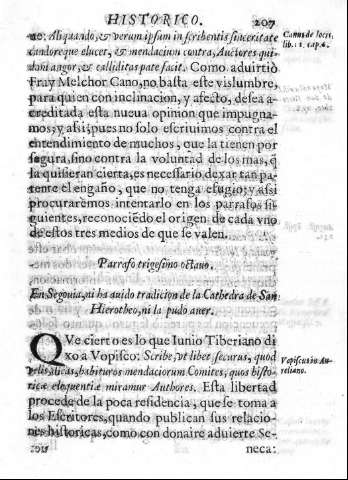 HISTORICO. 207
ue: Aliquando, & verum ipsum in scribentis sinceritate
candoreque elucet, & mendacium contra, Auctores qui-
dam angor, & calliditas pate facit. Como aduirtiò
Fray Melchor Cano, no basta este vislumbre,
para quien con inclinacion, y afecto, desea a-
creditada esta nueua opinion que impugna-
mos; y assi, pues no solo escriuimos contra el
entendimiento de muchos, que la tienen por
segura, sino contra la voluntad de los mas, q̃
la quisieran cierta, es necessario dexar tan pa-
tente el engaño, que no tenga efugio; y assi
procuraremos intentarlo en los parrafos si-
guientes, reconociẽdo el origen de cada vno
de estos tres medios de que se valen.
Canus de locis
lib. 11. cap. 6.
Parrafo trigesimo octauo.
En Segouia, ni ha auido tradicion de la Cathedra de San
Hierotheo, ni la pudo auer.
QVe cierto es lo que Iunio Tiberiano di
xo a Vopisco: Scribe, vt libet securus, quod
velis dicas, habiturus mendaciorum Comites, quos histo-
ricæ eloquentiæ miramur Authores. Esta libertad
procede de la poca residencia, que se toma a
los Escritores, quando publican sus relacio-
nes historicas, como con donaire aduierte Se-
neca:
Vopiscus in Au-
reliano.